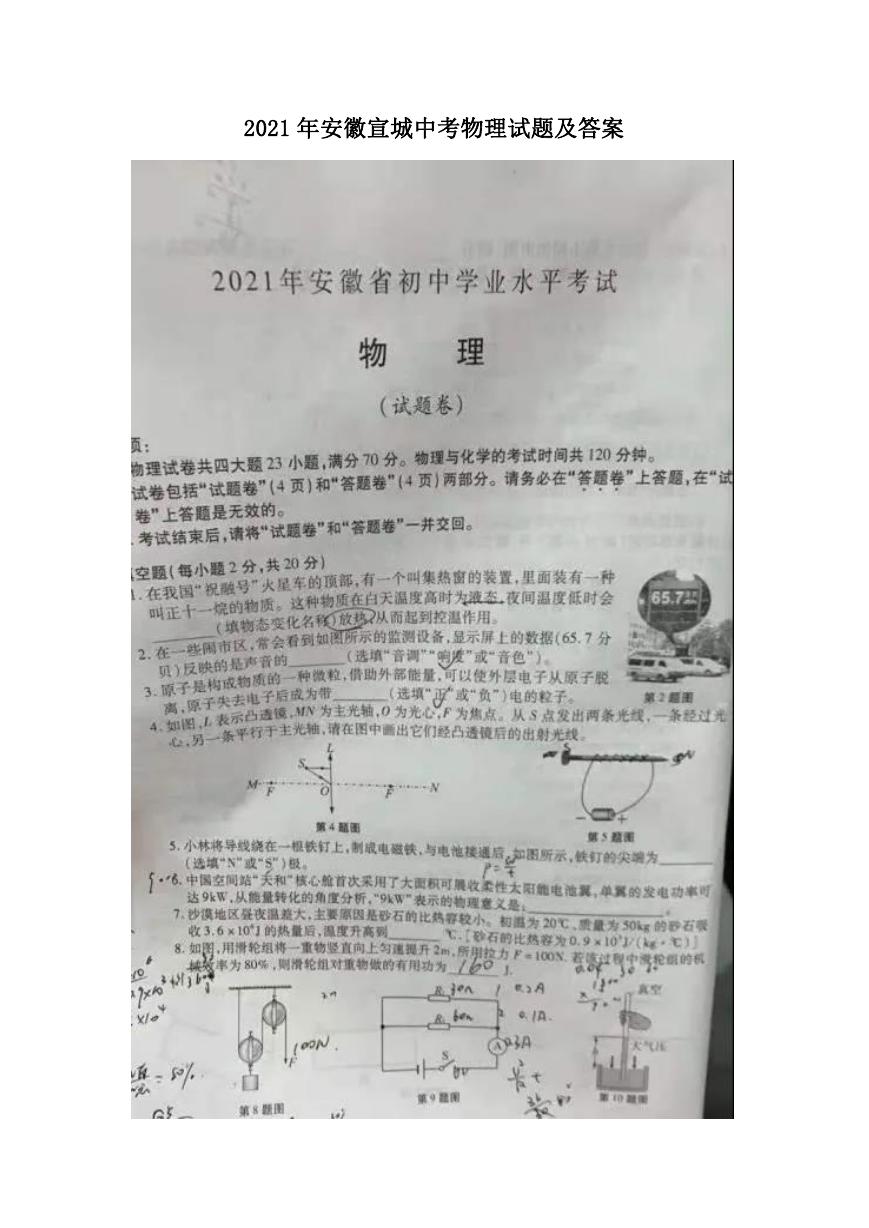 2021 年安徽宣城中考物理试题及答案
2021年安徽省初中学业水平考试
物 理
(试题卷)
项:
物理试卷共四大题 23 小题,满分 70 分。物理与化学的考试时间共 120 分钟。
试卷包括“试题卷”(4 页)和“答题卷”(4 页)两部分。请务必在“答题卷”上答题,在“试
卷”上答题是无效的。
考试结束后,请将“试题卷”和“答题卷”一并交回。
空题(每小题 2 分,共 20 分)
1. 在我国“祝融号”火星车的顶部,有一个叫集热窗的装置,里面装有一种
叫正十一烷的物质。这种物质在白天温度高时为液态,夜间温度低时会
______(填物态变化名称)放热,从而起到控温作用。
65.7
2. 在一些闹市区,常会看到如图所示的监测设备,显示屏上的数据(65. 7 分
贝)反映的是声音的______(选填“音调”“响度”或“音色”)。
3. 原子是构成物质的一种微粒,借助外部能量,可以使外层电子从原子脱
离,原子失去电子后成为带______(选填“正”或“负”)电的粒子。
第 2 题图
4. 如图,L 表示凸透镜,MN 为主光轴,O 为光心,F 为焦点。从 S 点发出两条光线,一条经过光
心,另一条平行于主光轴,请在图中画出它们经凸透镜后的出射光线。
L
S
M F O F N
- +
第 4 题图
第 5 题图
5. 小林将导线绕在一根铁钉上,制成电磁铁,与电池接通后,如图所示,铁钉的尖端为______
(选填“N”或“S”)极。
6. 中国空间站“天和”核心舱首次采用了大面积可展收柔性太阳能电池翼,单翼的发电功率可
达 9kW,从能量转化的角度分析,“9kW”表示的物理意义是:______。
7. 沙漠地区昼夜温差大,主要原因是砂石的比热容较小。初温为 20℃,质量为 50kg 的砂石吸
收 3.6 × 10⁵J 的热量后,温度升高到______℃. [砂石的比热容为 0. 9 × 10³J/(kg·℃)]
8. 如图,用滑轮组将一重物竖直向上匀速提升 2m,所用拉力 F = 100N. 若该过程中滑轮组的机
械效率为 80%,则滑轮组对重物做的有用功为 160 J.
R₁ 30Ω 0.2A
真空
R₂ 60Ω 0.1A
100N
F
A 0.3A
大气压
S
= 80%
第 8 题图
第 9 题图
第 10 题图